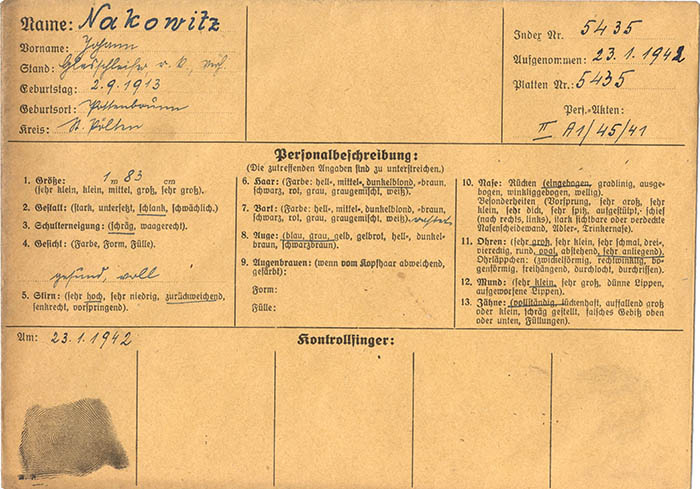 Name: Nakowitz
Vorname: Johann
Stand: Glasschleifer
Geburtstag: 2.9.1913
Geburtsort: Pottenbrunn
Kreis: St. Pölten
Index Nr. 5435
Aufgenommen: 23.1.1942
Platten Nr.: 5435
Pers.-Akten:
II A1/45/41
Personalbeschreibung:
(Die zutreffenden Angaben sind zu unterstreichen.)
1. Größe: 1 m 83 cm
(sehr klein, klein, mittel, groß, sehr groß).
2. Gestalt: (stark, untersetzt, schlank, schwächlich).
3. Schulterneigung: (schräg, waagerecht).
4. Gesicht: (Farbe, Form, Fülle).
gesund, voll
5. Stirn: (sehr hoch, sehr niedrig, zurückweichend,
senkrecht, vorspringend).
6. Haar: (Farbe: hell-, mittel-, dunkelblond, -braun,
schwarz, rot, grau, graugemischt, weiß).
7. Bart: (Farbe: hell-, mittel-, dunkelblond, -braun,
schwarz, rot, grau, graugemischt, weiß).
8. Auge: (blau, grau, gelb, gelbrot, hell-, dunkel-
braun, schwarzbraun).
9. Augenbrauen: (wenn vom Kopfhaar abweichend,
gefärbt):
Form:
Fülle:
10. Nase: Rücken (eingebogen, gradlinig, ausge-
bogen, winkliggebogen, wellig).
Besonderheiten (Vorsprung, sehr groß, sehr
klein, sehr dick, sehr spitz, aufgestülpt, schief
(nach rechts, links), stark sichtbare oder verdeckte
Nasenscheidewand, Adler-, Trinkernase).
11. Ohren: (sehr groß, sehr klein, sehr schmal, drei-,
viereckig, rund, oval, abstehend, sehr anliegend)
Ohrläppchen: (zwickelförmig, rechtwinklig, bo-
genförmig, freihängend, durchlocht, durchrissen).
12. Mund: (sehr klein, sehr groß, dünne Lippen,
aufgeworfene Lippen).
13. Zähne: (vollständig, lückenhaft, auffallend groß
oder klein, schräg gestellt, falsches Gebiß oben
oder unten, Füllungen).
Am: 23.1.1942
Kontrollfinger: